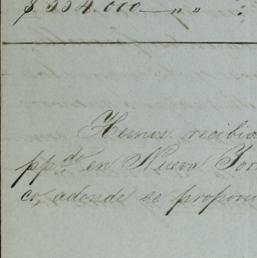 $ 334.000 — " "
Hemos recibido
pp.do en Nueva Yor
co, adonde se propon